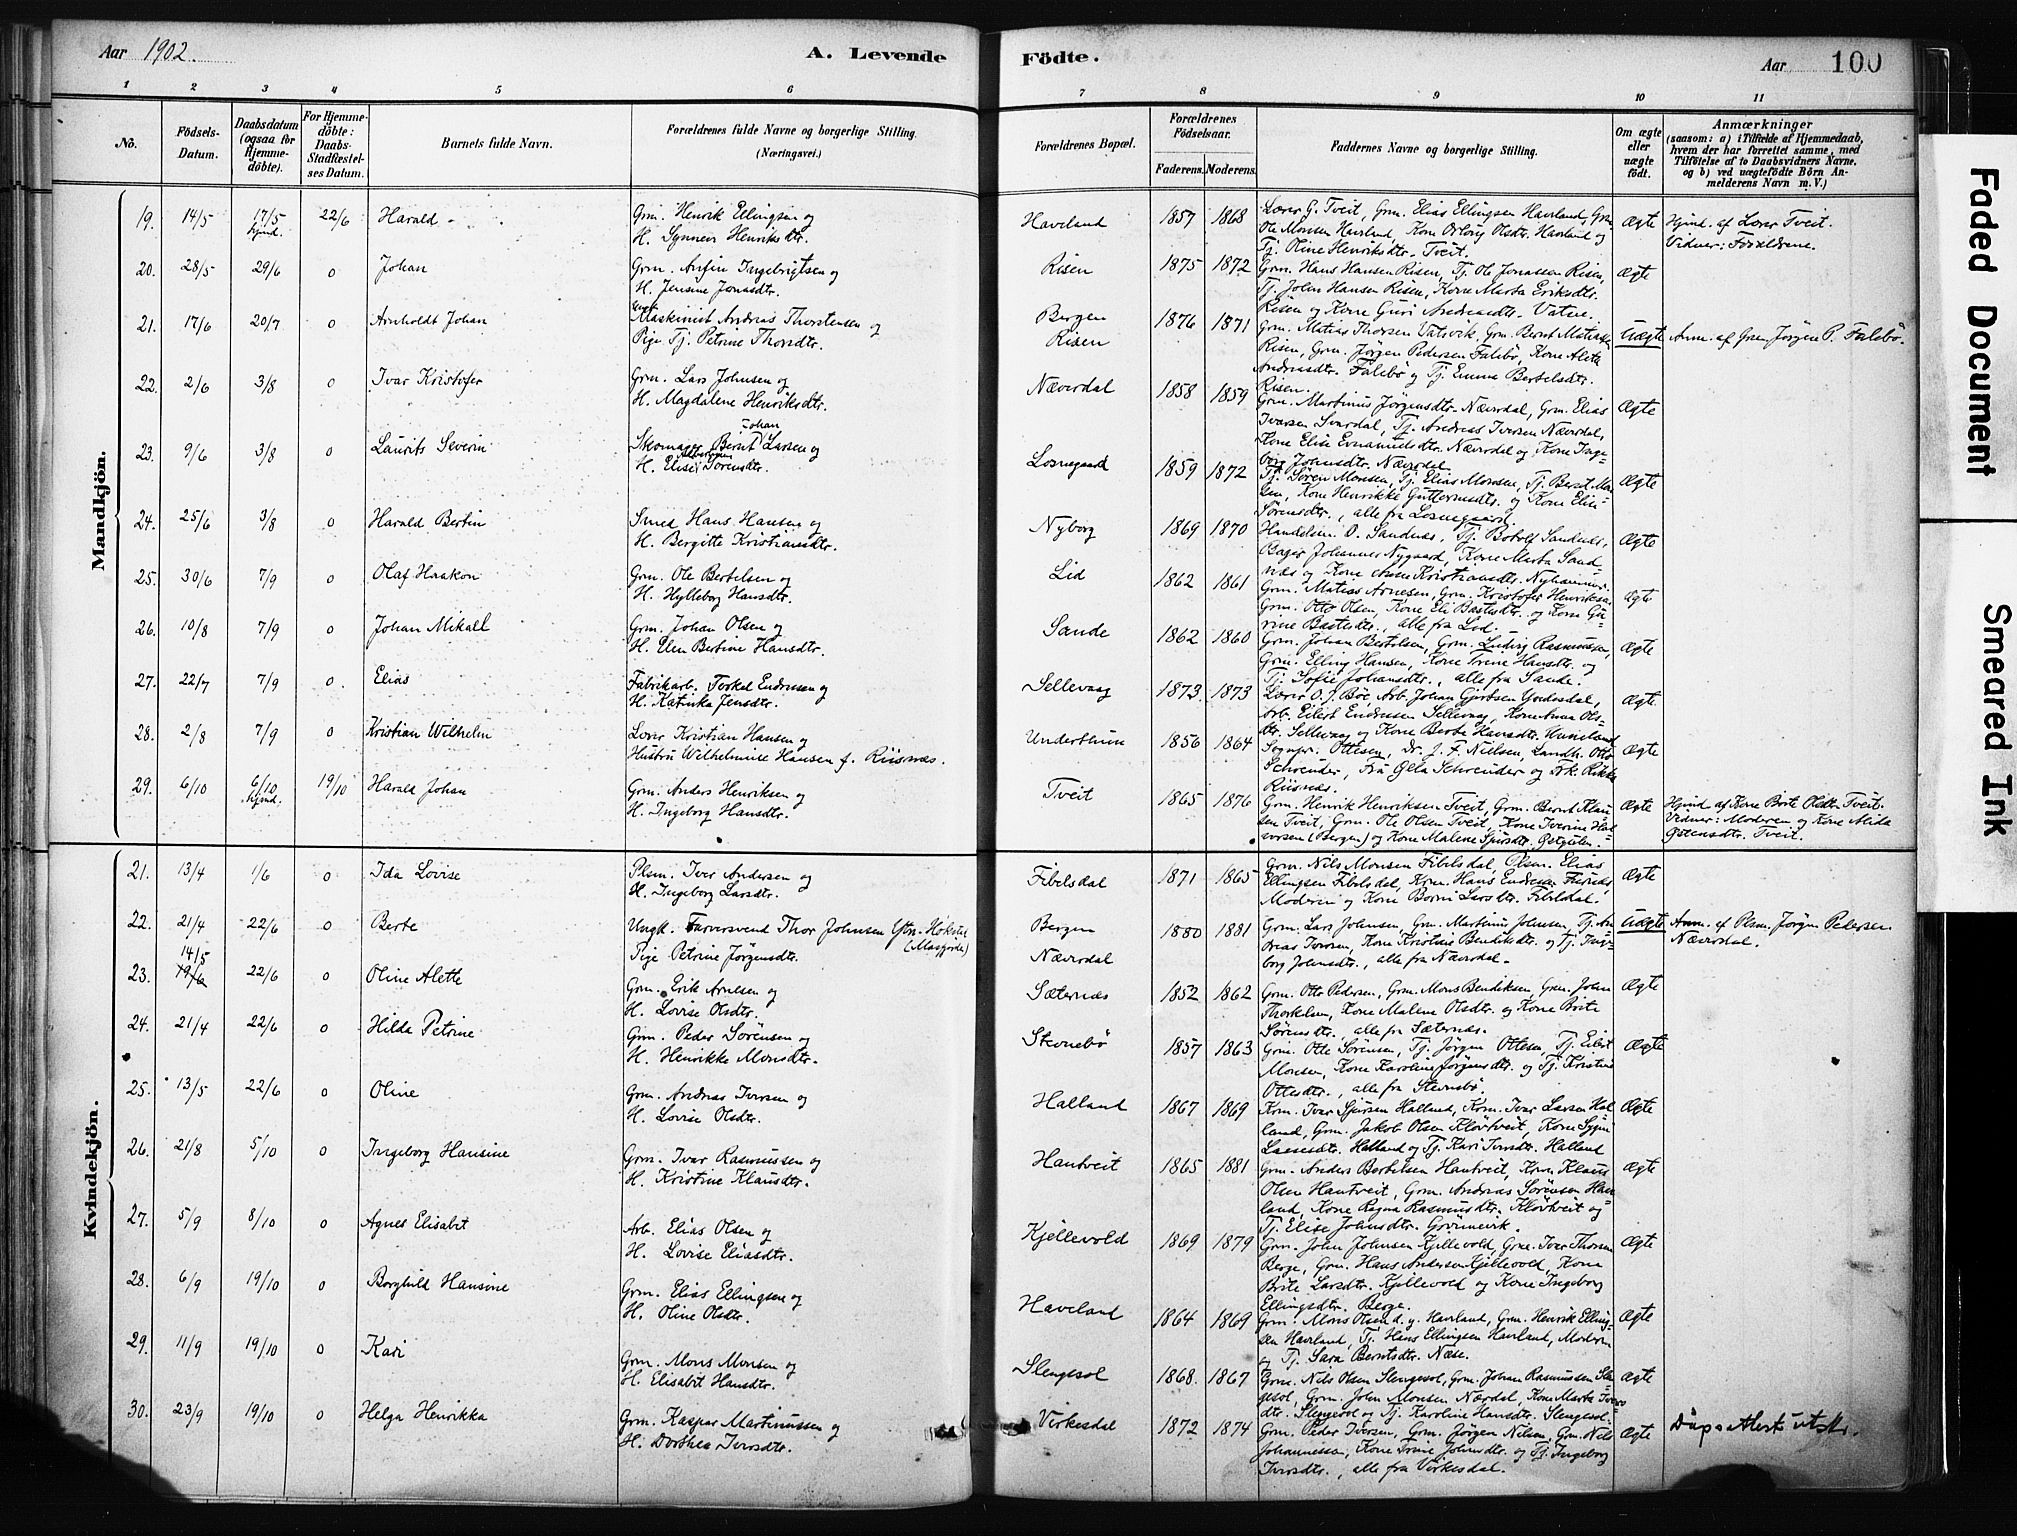 Aar 1902.
A. Levende Födte.
Aar 100
Faded Document
Smeared Ink
1 2 3 4 5 6 7 8 9 10 11
No.
Födsels-Datum.
Daabsdatum (ogsaa for Hjemmedöbte).
For Hjemmedöbte: Daabs-Stadfæstelses Datum.
Barnets fulde Navn.
Forældrenes fulde Navne og borgerlige Stilling. (Næringsvei.)
Forældrenes Bopæl.
Forældrenes Födselsaar.
Faderens. Moderens.
Faddernes Navne og borgerlige Stilling.
Om ægte eller uægte födt.
Anmærkninger
(saasom: a) i Tilfælde af Hjemmedaab, hvem der har forrettet samme, med Tilföielse af to Daabsvidners Navne, og b) ved uægtefödte Börn Anmelderens Navn m. V.)
Mandkjön.
19. 14/5 17/5 hjmd. 22/6 Harald
Grm. Henrik Ellingsen og
H. Synneva Henriksdtr.
Haveland 1857 1868
Lærer G. Tveit, Grm. Elias Ellingsen Haveland, Grm.
Ole Monsen Haveland, Kone Olsdtr. Haveland og
Tj. Oline Henriksdtr. Tveit.
Ægte
Hjmd. af Lærer Tveit.
Vidner: Forældrene.
20. 28/5 29/6 0 Johan
Grm. Anfin Ingebrigtsen og
H. Jensine Jonasdtr.
Risen 1875 1872
Grm. Hans Hansen Risen, Tj. Ole Jonassen Risen,
Tj. John Hansen Risen, Kone Marta Eriksdtr.
Risen og Kone Guri Andreasdtr. Vatne.
Ægte
21. 17/6 20/7 0 Arnholdt Johan
Maskinist Andreas Thorstensen og
Pige Tj. Petrine Thorsdtr.
Bergen
Risen 1876 1871
Grm. Matias Thorsen Vatsvik, Grm. Bernt Matiassen
Risen, Grm. Jörgen Pedersen Falebö, Kone Alette
Andreasdtr. Falebö og Tj. Emma Bertelsdtr.
Risen.
Uægte
Anm. af Grm Jörgen P. Falebö.
22. 2/6 3/8 0 Ivar Kristofer
Grm. Lars Johnsen og
H. Magdalene Henriksdtr.
Næverdal 1858 1859
Grm. Martinus Jörgensdtr. Næverdal, Grm. Elias
Ivarsen Sverdal, Tj. Andreas Iversen Næverdal,
Kone Elise Næverdal og Kone Ingeborg Johnsdtr. Næverdal
Ægte
23. 9/6 3/8 0 Laurits Severin
Skomager Bernt Johan Larsen og
H. Elisa Sörensdtr.
Losnegaard 1859 1872
Tj. Sören Monsen, Tj. Elias Monsen, Tj. Bernt Monsen,
Kone Henrikke Guttormsdtr. og Kone Elin
Sörensdtr., alle fra Losnegaard.
Ægte
24. 25/6 3/8 0 Harald Bertin
Smed Hans Hansen og
H. Bergitte Kristiansdtr.
Nyborg 1869 1870
Handelsm. O. Sandnæs, Tj. Botolf Sandnæs,
Bager Johannes Nygaard, Kone Marta Sandnæs
og Kone Kristiansdtr. Nyhammer.
Ægte
25. 30/6 7/9 0 Olaf Haakon
Grm. Ole Bertelsen og
H. Hylleborg Hansdtr.
Lid 1862 1861
Grm. Matias Arnesen, Grm. Kristofer Henriksen,
Grm. Otto Olsen, Kone Eli Bastesdtr. og Kone Gurine
Bastesdtr., alle fra Lid.
Ægte
26. 10/8 7/9 0 Johan Mikael
Grm. Johan Olsen og
H. Elen Bertine Hansdtr.
Sande 1862 1860
Grm. Johan Bertelsen, Grm. Ludvig Rasmussen,
Grm. Elling Hansen, Kone Trine Hansdtr. og
Tj. Sofie Johansdtr., alle fra Sande.
Ægte
27. 22/7 7/9 0 Elias
Fabrikarb. Terkel Endresen og
H. Katinka Jensdtr.
Sellevaag 1873 1873
Lærer O. J. Bö, Arb. Johan Gjertsen Yndesdal,
Arb. Eilert Endresen Sellevaag, Kone Anna Olsdtr.
Sellevaag og Kone Berte Hansdtr.
Ægte
28. 2/8 7/9 0 Kristian Wilhelm
Lærer Kristian Hansen og
Hustru Wilhelmine Hansen f. Riisnæs.
Underthun 1856 1864
Sognepr. Ottesen, Dr. J. F. Nielsen, Landh. Otto
Schreuder, Fru Schreuder og Frk. Rikke
Riisnæs.
Ægte
29. 6/10 6/10 hjmd. 19/10 Harald Johan
Grm. Anders Henriksen og
H. Ingeborg Hansdtr.
Tveit 1865 1876
Grm. Henrik Henriksen Tveit, Grm. Bernt Klausen
Tveit, Grm. Ole Olsen Tveit, Kone Iverine Halvorsen
(Bergen) og Kone Malene Sjursdtr.
Ægte
Hjmd. af Kone Brite Olsdtr. Tveit.
Vidner: Moderen og Kone Alida
Östensdtr. Tveit.
Kvindekjön.
21. 13/4 1/6 0 Ida Lovise
Plsm. Iver Andersen og
H. Ingeborg Larsdtr.
Fibelsdal 1871 1865
Grm. Nils Monsen Fibelsdal, Plsm. Elias
Ellingsen Fibelsdal, Krm. Hans Endresen,
Moderen og Kone Larsdtr. Fibelsdal.
Ægte
22. 21/4 22/6 0 Berte
Ungk. Farversvend Thor Johnsen (Masfjorden)
Pige Petrine Jörgensdtr.
Bergen
Næverdal 1880 1881
Grm. Lars Johnsen, Grm. Martinus Johnsen, Tj. Andreas
Iversen, Kone Kristine Bendiksdtr. og Tj. Ingeborg
Johnsdtr., alle fra Næverdal.
Uægte
Anm. af Plsm. Jörgen Pedersen
Næverdal.
23. 14/5 19/6 22/6 0 Oline Alette
Grm. Erik Arnesen og
H. Lovise Olsdtr.
Sæternæs 1852 1862
Grm. Otto Pedersen, Grm. Mons Bendiksen, Grm. John
Thorkelsen, Kone Malene Olsdtr. og Kone Brite
Sörensdtr., alle fra Sæternæs.
Ægte
24. 21/4 22/6 0 Hilda Petrine
Grm. Peder Sörensen og
H. Henrikke Monsdtr.
Stevnebö 1857 1863
Grm. Otte Sörensen, Tj. Jörgen Ottesen, Tj. Eilert
Monsen, Kone Karoline Jörgensdtr. og Tj. Kristine
Ottesdtr., alle fra Stevnebö.
Ægte
25. 13/5 22/6 0 Oline
Grm. Andreas Iversen og
H. Lovise Olsdtr.
Halland 1867 1869
Krm. Ivar Sjursen Halland, Krm. Ivar Larsen Halland,
Grm. Jakob Olsen Klövtveit, Kone
Lassesdtr. Halland og Tj. Kari Iversdtr. Halland
Ægte
26. 21/8 5/10 0 Ingeborg Hansine
Grm. Ivar Rasmussen og
H. Kristine Klausdtr.
Hantveit 1865 1881
Grm. Anders Bertelsen Hantveit, Krm. Klaus
Olsen Hantveit, Grm. Andreas Sörensen Haveland,
Kone Ragna Rasmusdtr. Klövtveit og
Tj. Elise Johnsdtr.
Ægte
27. 5/9 8/10 0 Agnes Elisabet
Arb. Elias Olsen og
H. Lovise Eliasdtr.
Kjellevold 1869 1879
Grm. John Johnsen Kjellevold, Grm. Ivar Thorsen
Berge, Grm. Hans Andersen Kjellevold, Kone
Brite Larsdtr. Kjellevold og Kone Ingeborg
Ellingsdtr. Berge.
Ægte
28. 6/9 19/10 0 Borghild Hansine
Grm. Elias Ellingsen og
H. Oline Olsdtr.
Haveland 1864 1869
Grm. Mons Olsen d. y. Haveland, Grm. Henrik Ellingsen
Haveland, Tj. Hans Ellingsen Haveland, Moderen
og Tj. Sara Berntsdtr. Næse.
Ægte
29. 11/9 19/10 0 Kari
Grm. Mons Monsen og
H. Elisabet Hansdtr.
Slengesol 1868 1867
Grm. Nils Olsen Slengesol, Grm. Johan Rasmussen Slengesol,
Grm. John Monsen Nærdal, Kone Marta Iversdtr.
Slengesol og Tj. Karoline Hansdtr. Slengesol.
Ægte
30. 23/9 19/10 0 Helga Henrikka
Grm. Kaspar Martinussen og
H. Dorthea Iversdtr.
Virkesdal 1872 1874
Grm. Peder Iversen, Grm. Jörgen Nilsen, Grm. Nils
Johannessen, Kone Trine Johnsdtr. og Tj. Ingeborg
Iversdtr., alle fra Virkesdal.
Ægte
Dåpsattest utst.